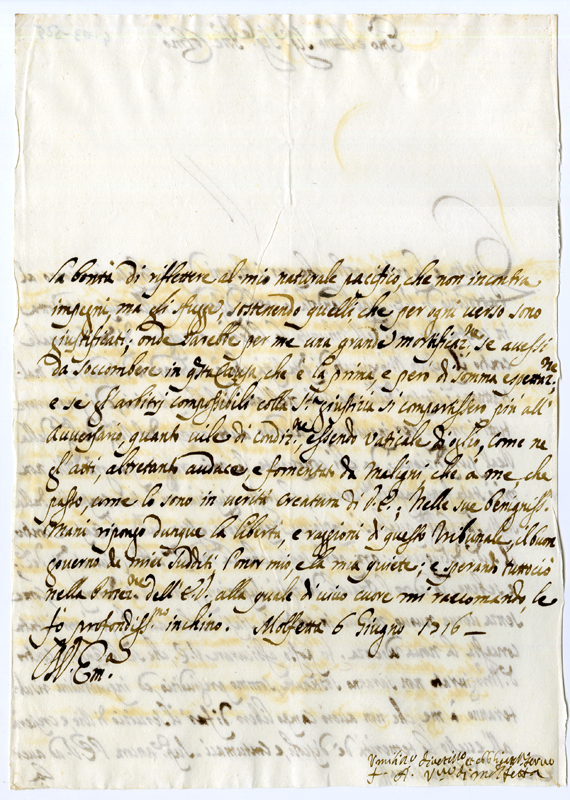 la bontà di riflettere al mio naturale pacifico, che non incontra
impegni, ma gli sfugge, sostenendo quelli che per ogni verso sono
giustificati; onde sarebbe per me una grande mortificaz.ne se avessi
da soccombere in q.sta causa, che è la prima, e però di somma
e se gl'arbitrij compossibili colla S.ta giustizia si compartissero più all'
Avversario, quanto vile di condiz.ne essendo d'oglio, come ne
gl'atti, altretanto audace e fomentato da Maligni, che a me, che
passo, come lo sono in verità creatura di V.E.; Nelle sue benigniss.e
Mani ripongo dunque la libertà, e raggioni di questo Tribunale, il buon
governo de miei sudditi, e la mia quiete; e sperando tuttociò
nella Protez.ne dell'E.V. alla quale di vivo cuore mi raccomando, le
fò profondiss.mo inchino. Molfetta 6 Giugno 1716
Di V. Em.a
Umiliss.o divotiss.o et obligatiss.o servo
+ A. V.vo di Molfetta